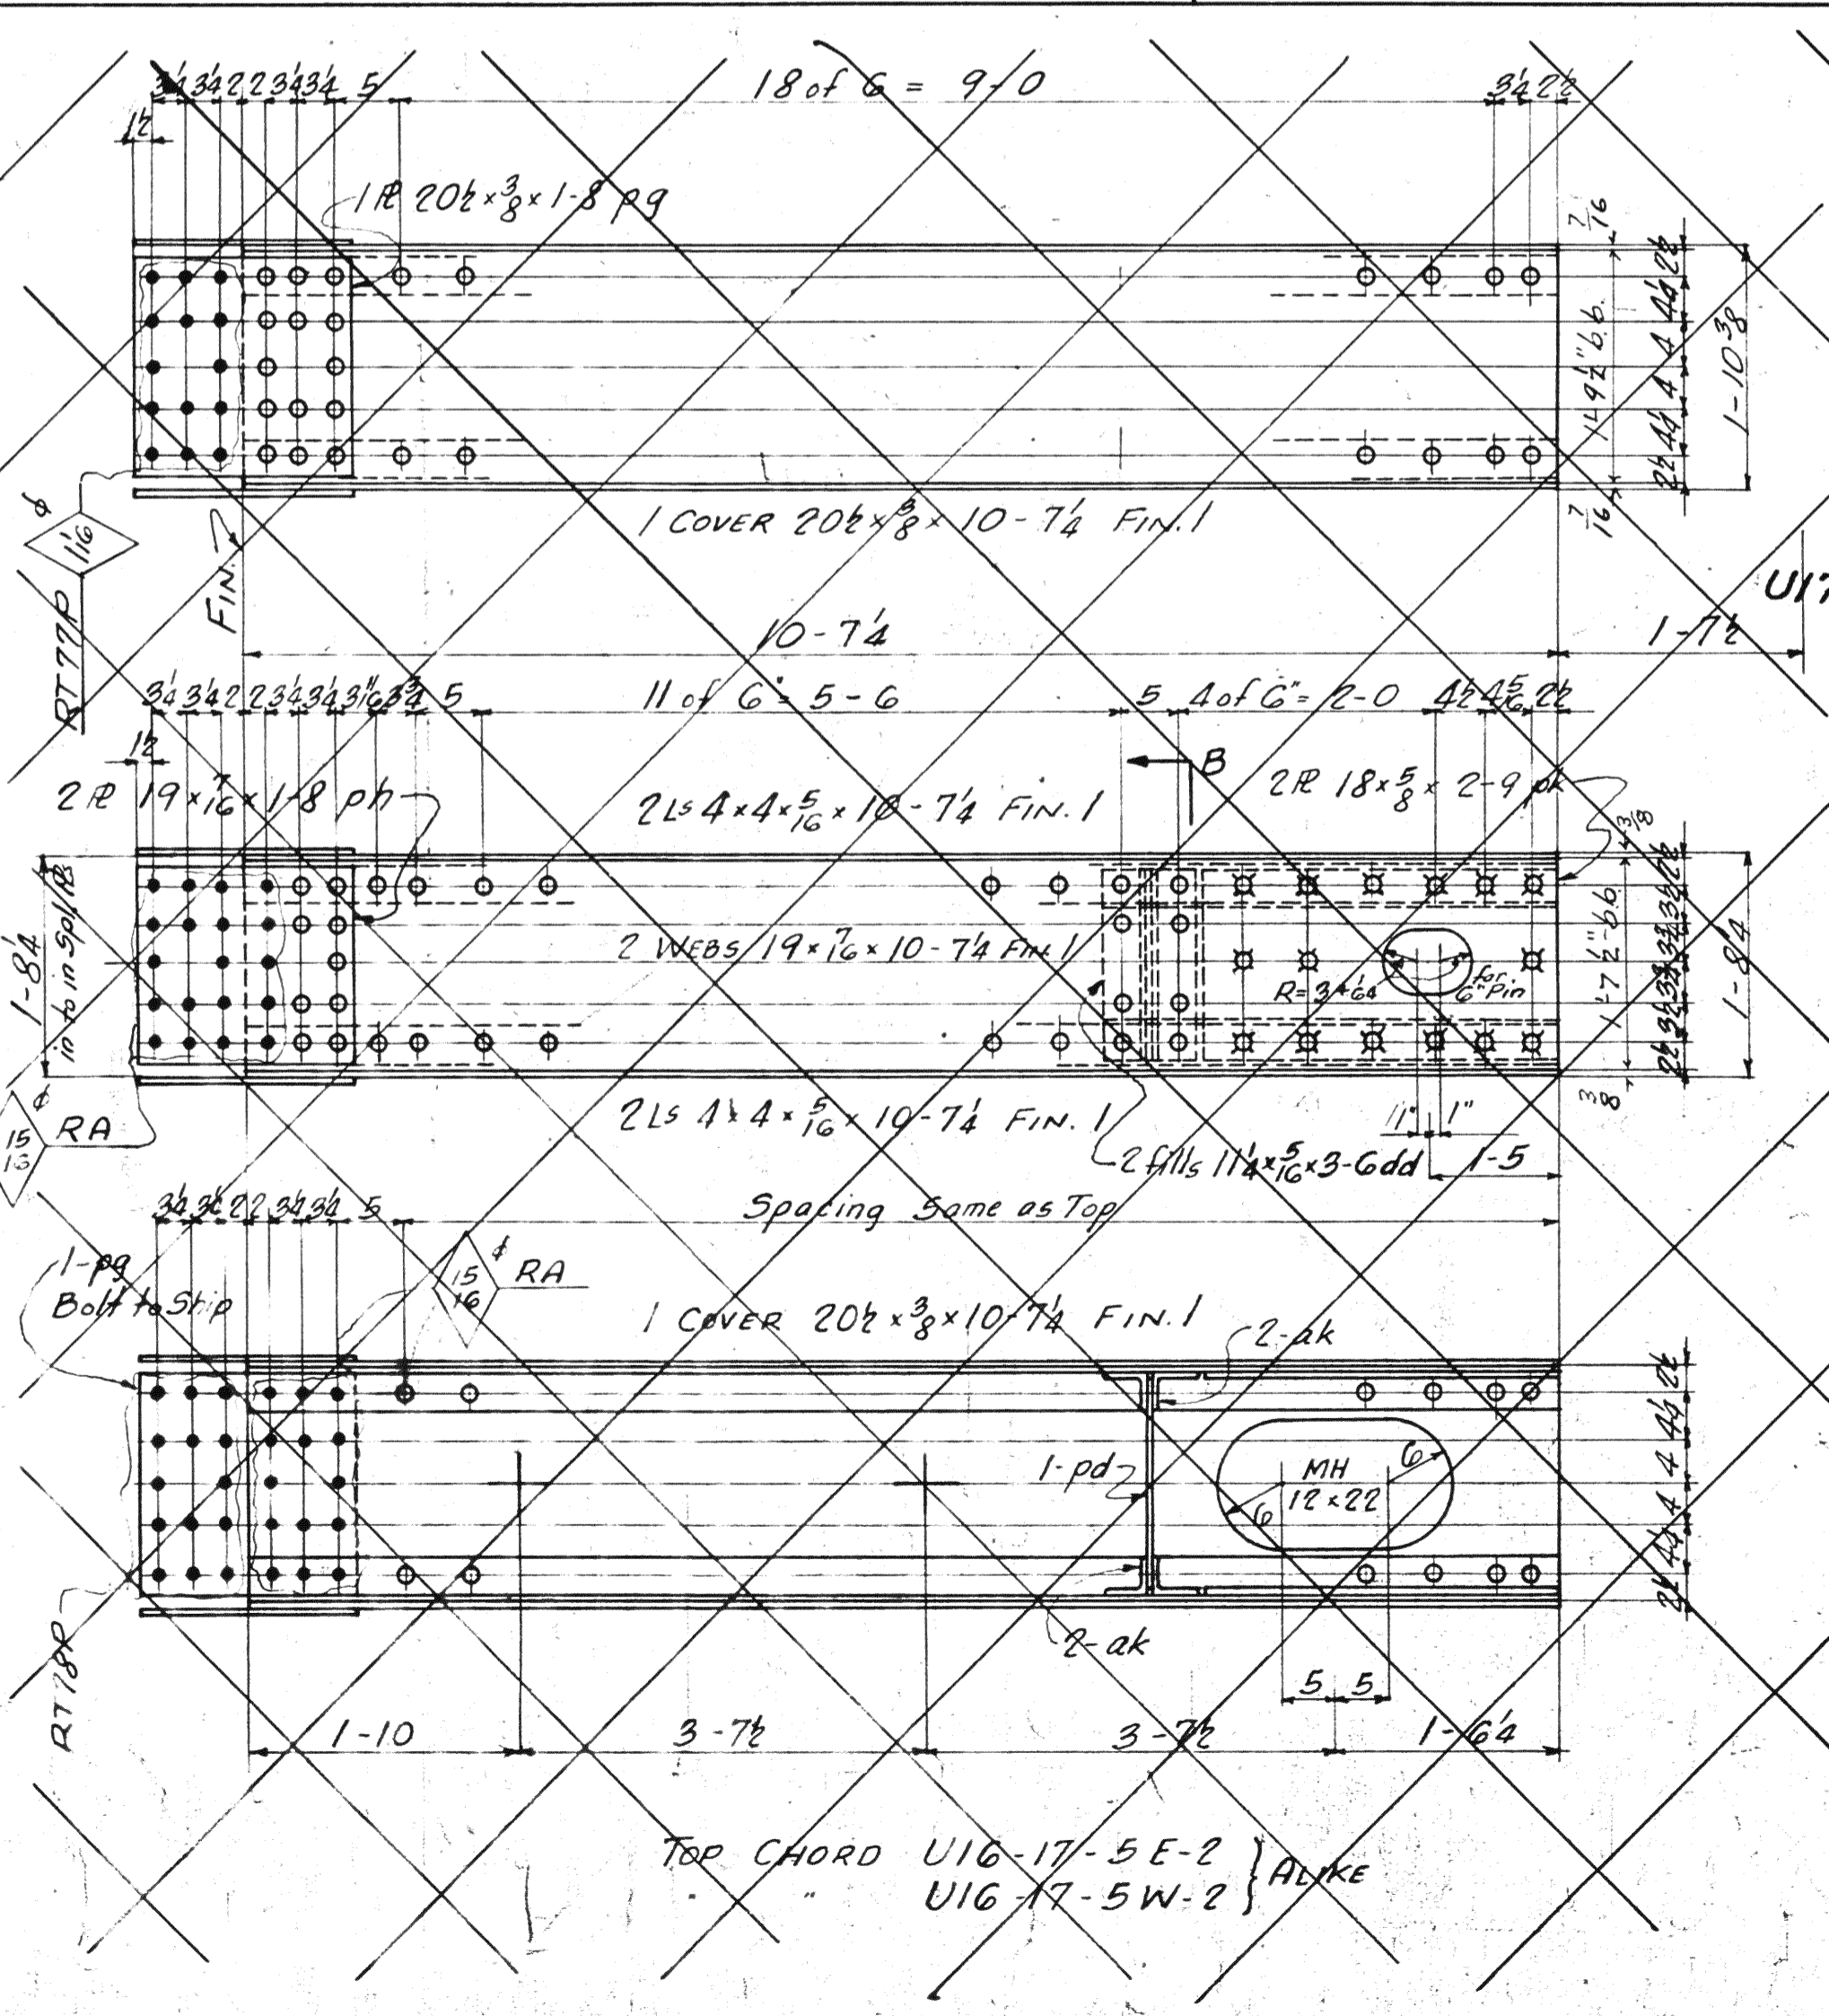 3¼ 3¼ 2 2 3¼ 3¼ 5 18 of 6 = 9-0 3¼ 2½
1½
1 PL 20½ × 3/8 × 1-8 pg
7/16
2½ 4¼ 4 4 4¼ 2½
1-9½" b.b.
1-10 3/8
7/16
1 COVER 20½ × 3/8 × 10-7¼ FIN. 1
1 1/16 φ
RT77P
FIN.
U17
10-7¼ 1-7½
3¼ 3¼ 2 2 3¼ 3¼ 3 11/16 3¾ 5 11 of 6" = 5-6 5 4 of 6" = 2-0 4½ 4 5/16 2½
1½
B
2 PL 19 × 7/16 × 1-8 ph
2 Ls 4 × 4 × 5/16 × 10-7¼ FIN. 1
2 PL 18 × 5/8 × 2-9 pk
3/8
1-8¼
in to in Spl. PLs
2 WEBS 19 × 7/16 × 10-7¼ FIN. 1
R = 3 + 1/64
for 6" Pin
1-7½" b.b.
1-8¼
3/8
15/16 φ RA
2 Ls 4 × 4 × 5/16 × 10-7¼ FIN. 1
1" 1"
2 fills 11¼ × 5/16 × 3-6 dd
1-5
3¼ 3¼ 2 2 3¼ 3¼ 5 Spacing Same as Top
1-pg
Bolt to Ship
15/16 φ RA
1 COVER 20½ × 3/8 × 10-7¼ FIN. 1
2-ak
2½ 4¼ 4 4 4¼ 2½
1-pd
MH
12 × 22
6
6
2-ak
RT78P
5 5
1-10 3-7½ 3-7½ 1-6¼
TOP CHORD U16-17-5E-2
" " U16-17-5W-2 } ALIKE